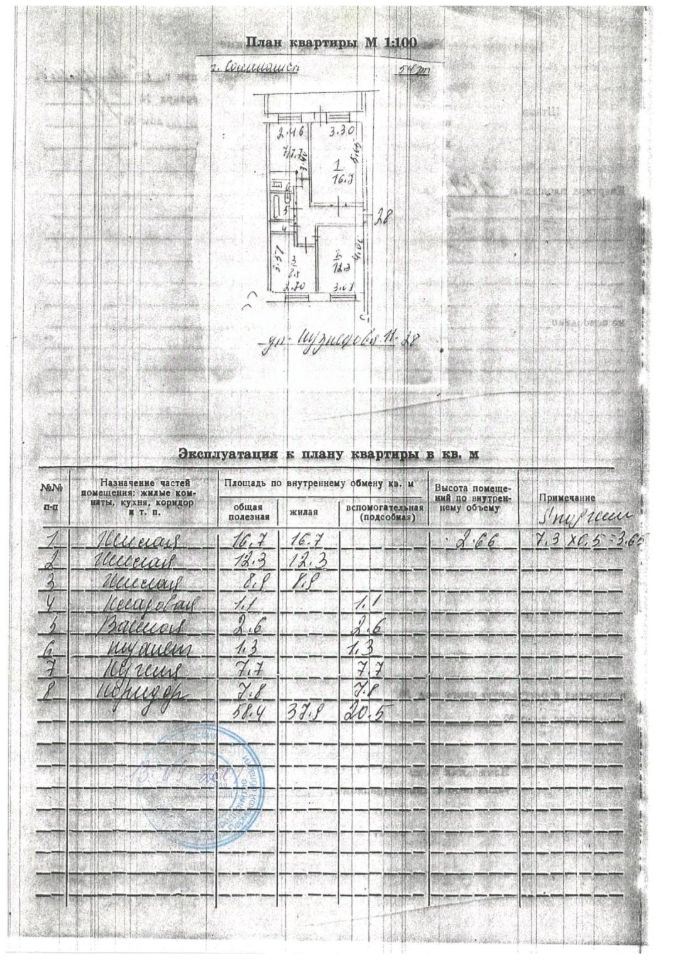 План квартиры М 1:100
5 этап
2.46
3.30
7.7
1
16.7
5.05
6
5
4
28
3.57
3
8.9
2
12.3
2.70
3.01
28
Эксплуатация к плану квартиры в кв. м
№№ п-п
Назначение частей помещения: жилые комнаты, кухни, коридор и т. п.
Площадь по внутреннему обмену кв. м
общая полезная
жилая
вспомогательная (подсобная)
Высота помещений по внутреннему объему
Примечание
1 Жилая 16.7 16.7 2.66 7.3 х 0.5 = 3.65
2 Жилая 12.3 12.3
3 Жилая 8.9 8.9
4 Кладовая 1.1 1.1
5 Ванная 2.6 2.6
6 туалет 1.3 1.3
7 Кухня 7.7 7.7
8 Коридор 7.8 7.8
58.4 37.9 20.5